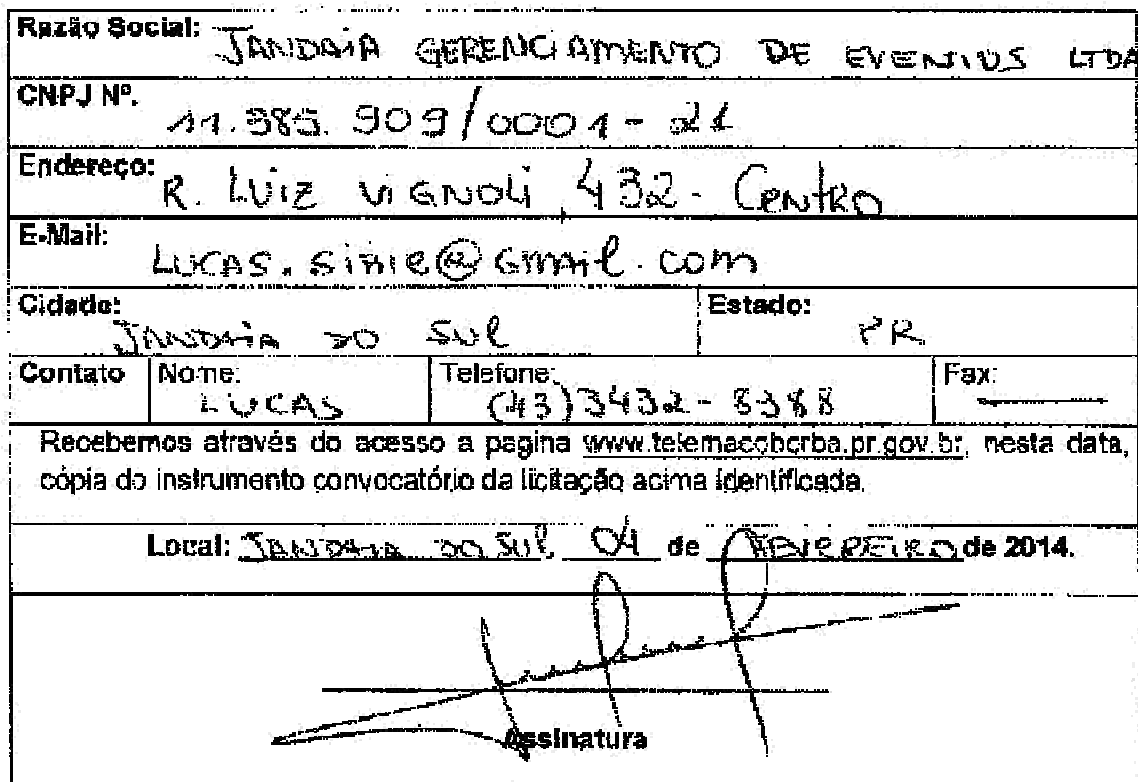 Razão Social: JANDAIA GERENCIAMENTO DE EVENTOS LTDA
CNPJ Nº. 11.385.909/0001-21
Endereço: R. LUIZ VIGNOLI, 432 - CENTRO
E-Mail: LUCAS.sinie@gmail.com
Cidade: JANDAIA DO SUL Estado: PR
Contato Nome: LUCAS Telefone: (43)3432-8388 Fax:
Recebemos através do acesso a pagina www.telemacoborba.pr.gov.br, nesta data,
cópia do instrumento convocatório da licitação acima identificada.
Local: JANDAIA DO SUL, 04 de FEVEREIRO de 2014.
Assinatura